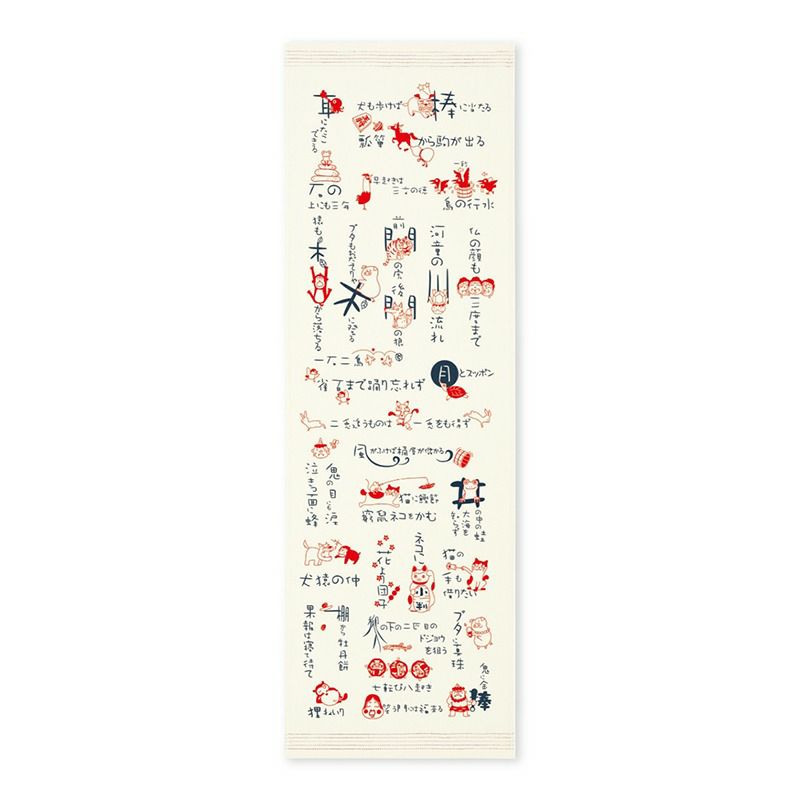 耳にたこできる
犬も歩けば棒に当たる
瓢箪から駒が出る
石の上にも三年
早起きは三文の徳
烏の行水
猿も木から落ちる
ブタもおだてりゃ木に登る
前門の虎後門の狼
河童の川流れ
仏の顔も三度まで
一石二鳥
雀百まで踊り忘れず
月とスッポン
二兎追うものは一兎をも得ず
風がふけば桶屋が儲かる
泣きっ面に蜂
鬼の目にも涙
猫に鰹節
窮鼠ネコをかむ
井の中の蛙大海を知らず
犬猿の仲
花より団子
ネコに小判
猫の手も借りたい
果報は寝て待て
棚から牡丹餅
柳の下の二匹目のドジョウを狙う
ブタに真珠
七転び八起き
鬼に金棒
狸ねいり
笑う門には福来る